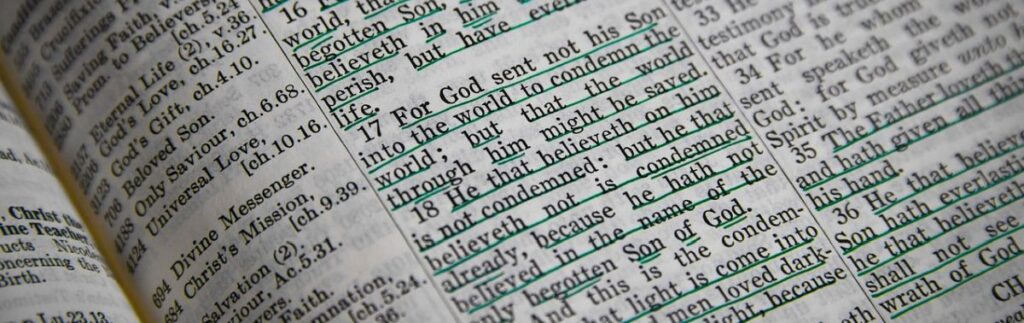 Crucifixion
Sufferings
Saving Faith, v.
Prom. to Believers,
[ch.5.24.
Eternal Life (2), v.36.
God's Love, ch.16.27.
God's Gift, ch.4.10.
Beloved Son.
Only Saviour, ch.6.68.
Universal Love,
[ch.10.16.
Divine Messenger.
Christ's Mission,
[ch.9.39.
Salvation (2),
Ac.5.31.
Faith.
[ch.5.24
3123
706
4188
4124
694
684
Christ the
ine Teacher
ucts
oncerning the
Birth.
Lu.23.13
16
world,
begotten Son,
believeth in him
perish, but have
life.
17 For God sent not his Son
into the world to condemn the
world; but that the world
through him might be saved.
18 He that believeth on him
is not condemned: but he that
believeth not is condemned
already, because he hath not
believed in the name of the
only begotten Son of God.
And this is the condem-
that light is come into
d men loved dark-
light, because
33 He
testimony
that God is
34 For he whom
sent speaketh the
God: for God giveth not
Spirit by measure unto
35 The Father loveth the
and hath given all thin
his hand.
36 He that believe
Son hath everlastin
he that believeth
shall not see
wrath of God
CH